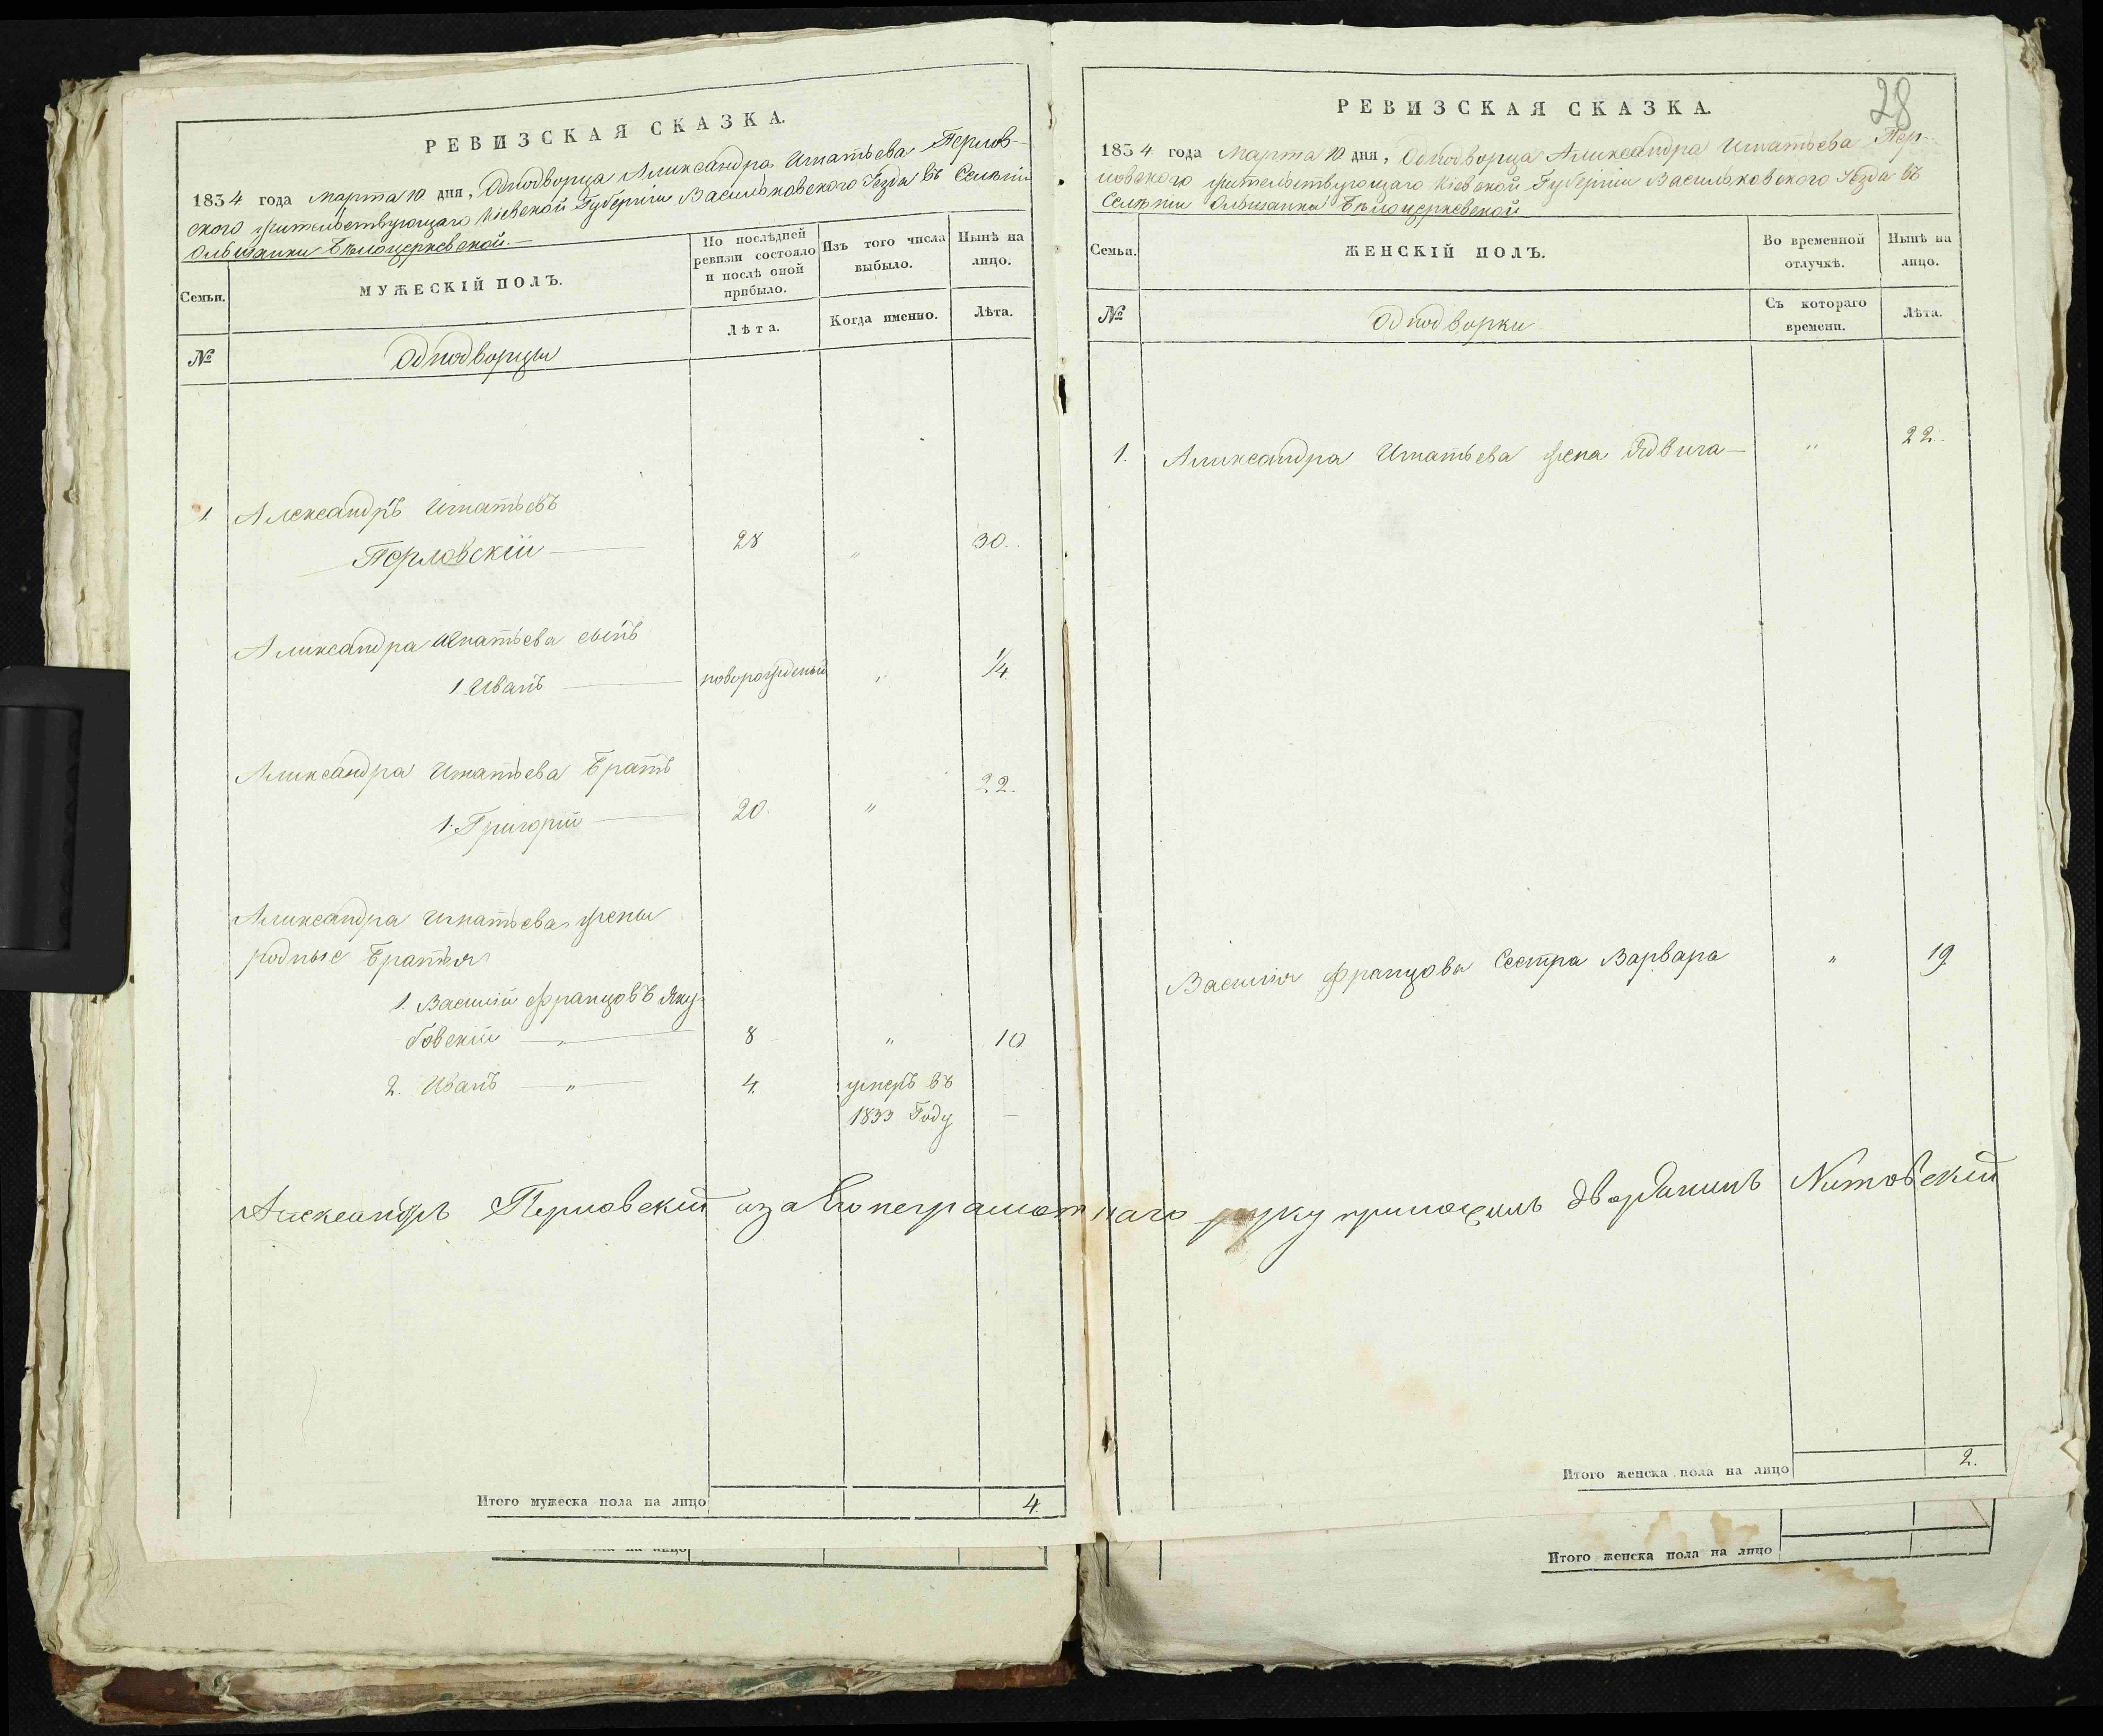 РЕВИЗСКАЯ СКАЗКА.
1834 года марта 10 дня, Однодворца Александра Игнатьева Перлов-
ского жительствующаго Кіевской Губерніи Васильковского Уезда въ Селеніи
Ольшанки Белоцерковской.
Семьи.
МУЖЕСКІЙ ПОЛЪ.
По послѣдней ревизіи состояло и послѣ оной прибыло.
Изъ того числа выбыло.
Нынѣ на лицо.
№
Однодворцы
Лѣта.
Когда именно.
Лѣта.
1 Александръ Игнатьевъ
Перловскій — 28 " 30.
Александра Игнатьева сынъ
1. Иванъ — новорожденый " 1/4.
Александра Игнатьева Братъ
1. Григорій — 20. " 22.
Александра Игнатьева жены
родные Братья
1. Василій Францовъ Яку-
бовскій — " — 8 " 10
2. Иванъ — " — 4. умеръ въ
1833 Году —
Александръ Перловскій а за его неграмотнаго руку приложилъ дворянинъ
Итого мужеска пола на лицо 4.
РЕВИЗСКАЯ СКАЗКА.
28
1834 года Марта 10 дня, Однодворца Александра Игнатьева Пер-
ловского жительствующаго Кіевской Губерніи Васильковского Уезда въ
Селеніи Ольшанки Белоцерковской
Семьи.
ЖЕНСКІЙ ПОЛЪ.
Во временной отлучкѣ.
Нынѣ на лицо.
№
Однодворки
Съ котораго времени.
Лѣта.
1. Александра Игнатьева жена Ядвига — " 22.
Василія Францова Сестра Варвара " 19
Итого женска пола на лицо 2.
Итого женска пола на лицо